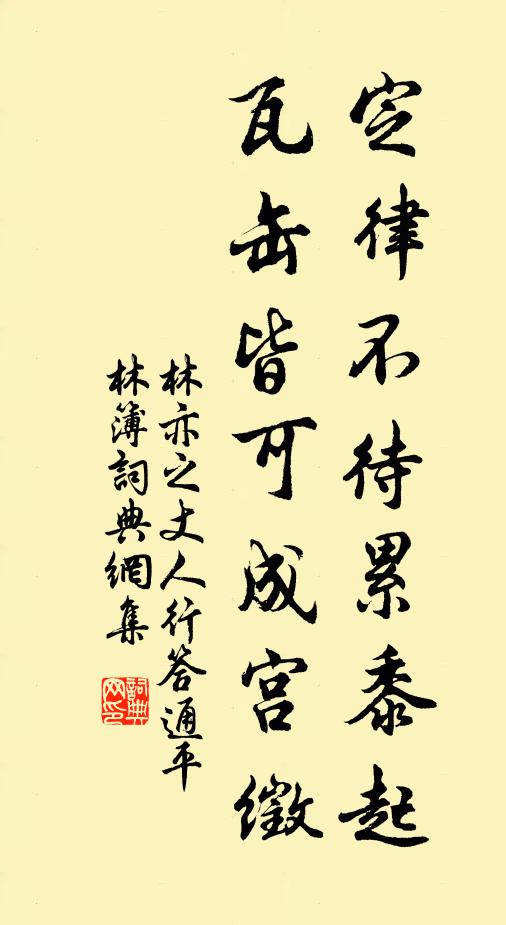 定律不待累黍起
瓦缶皆可成宫徵
林亦之丈人行答通平
林簿詞典網集
詞典
网印